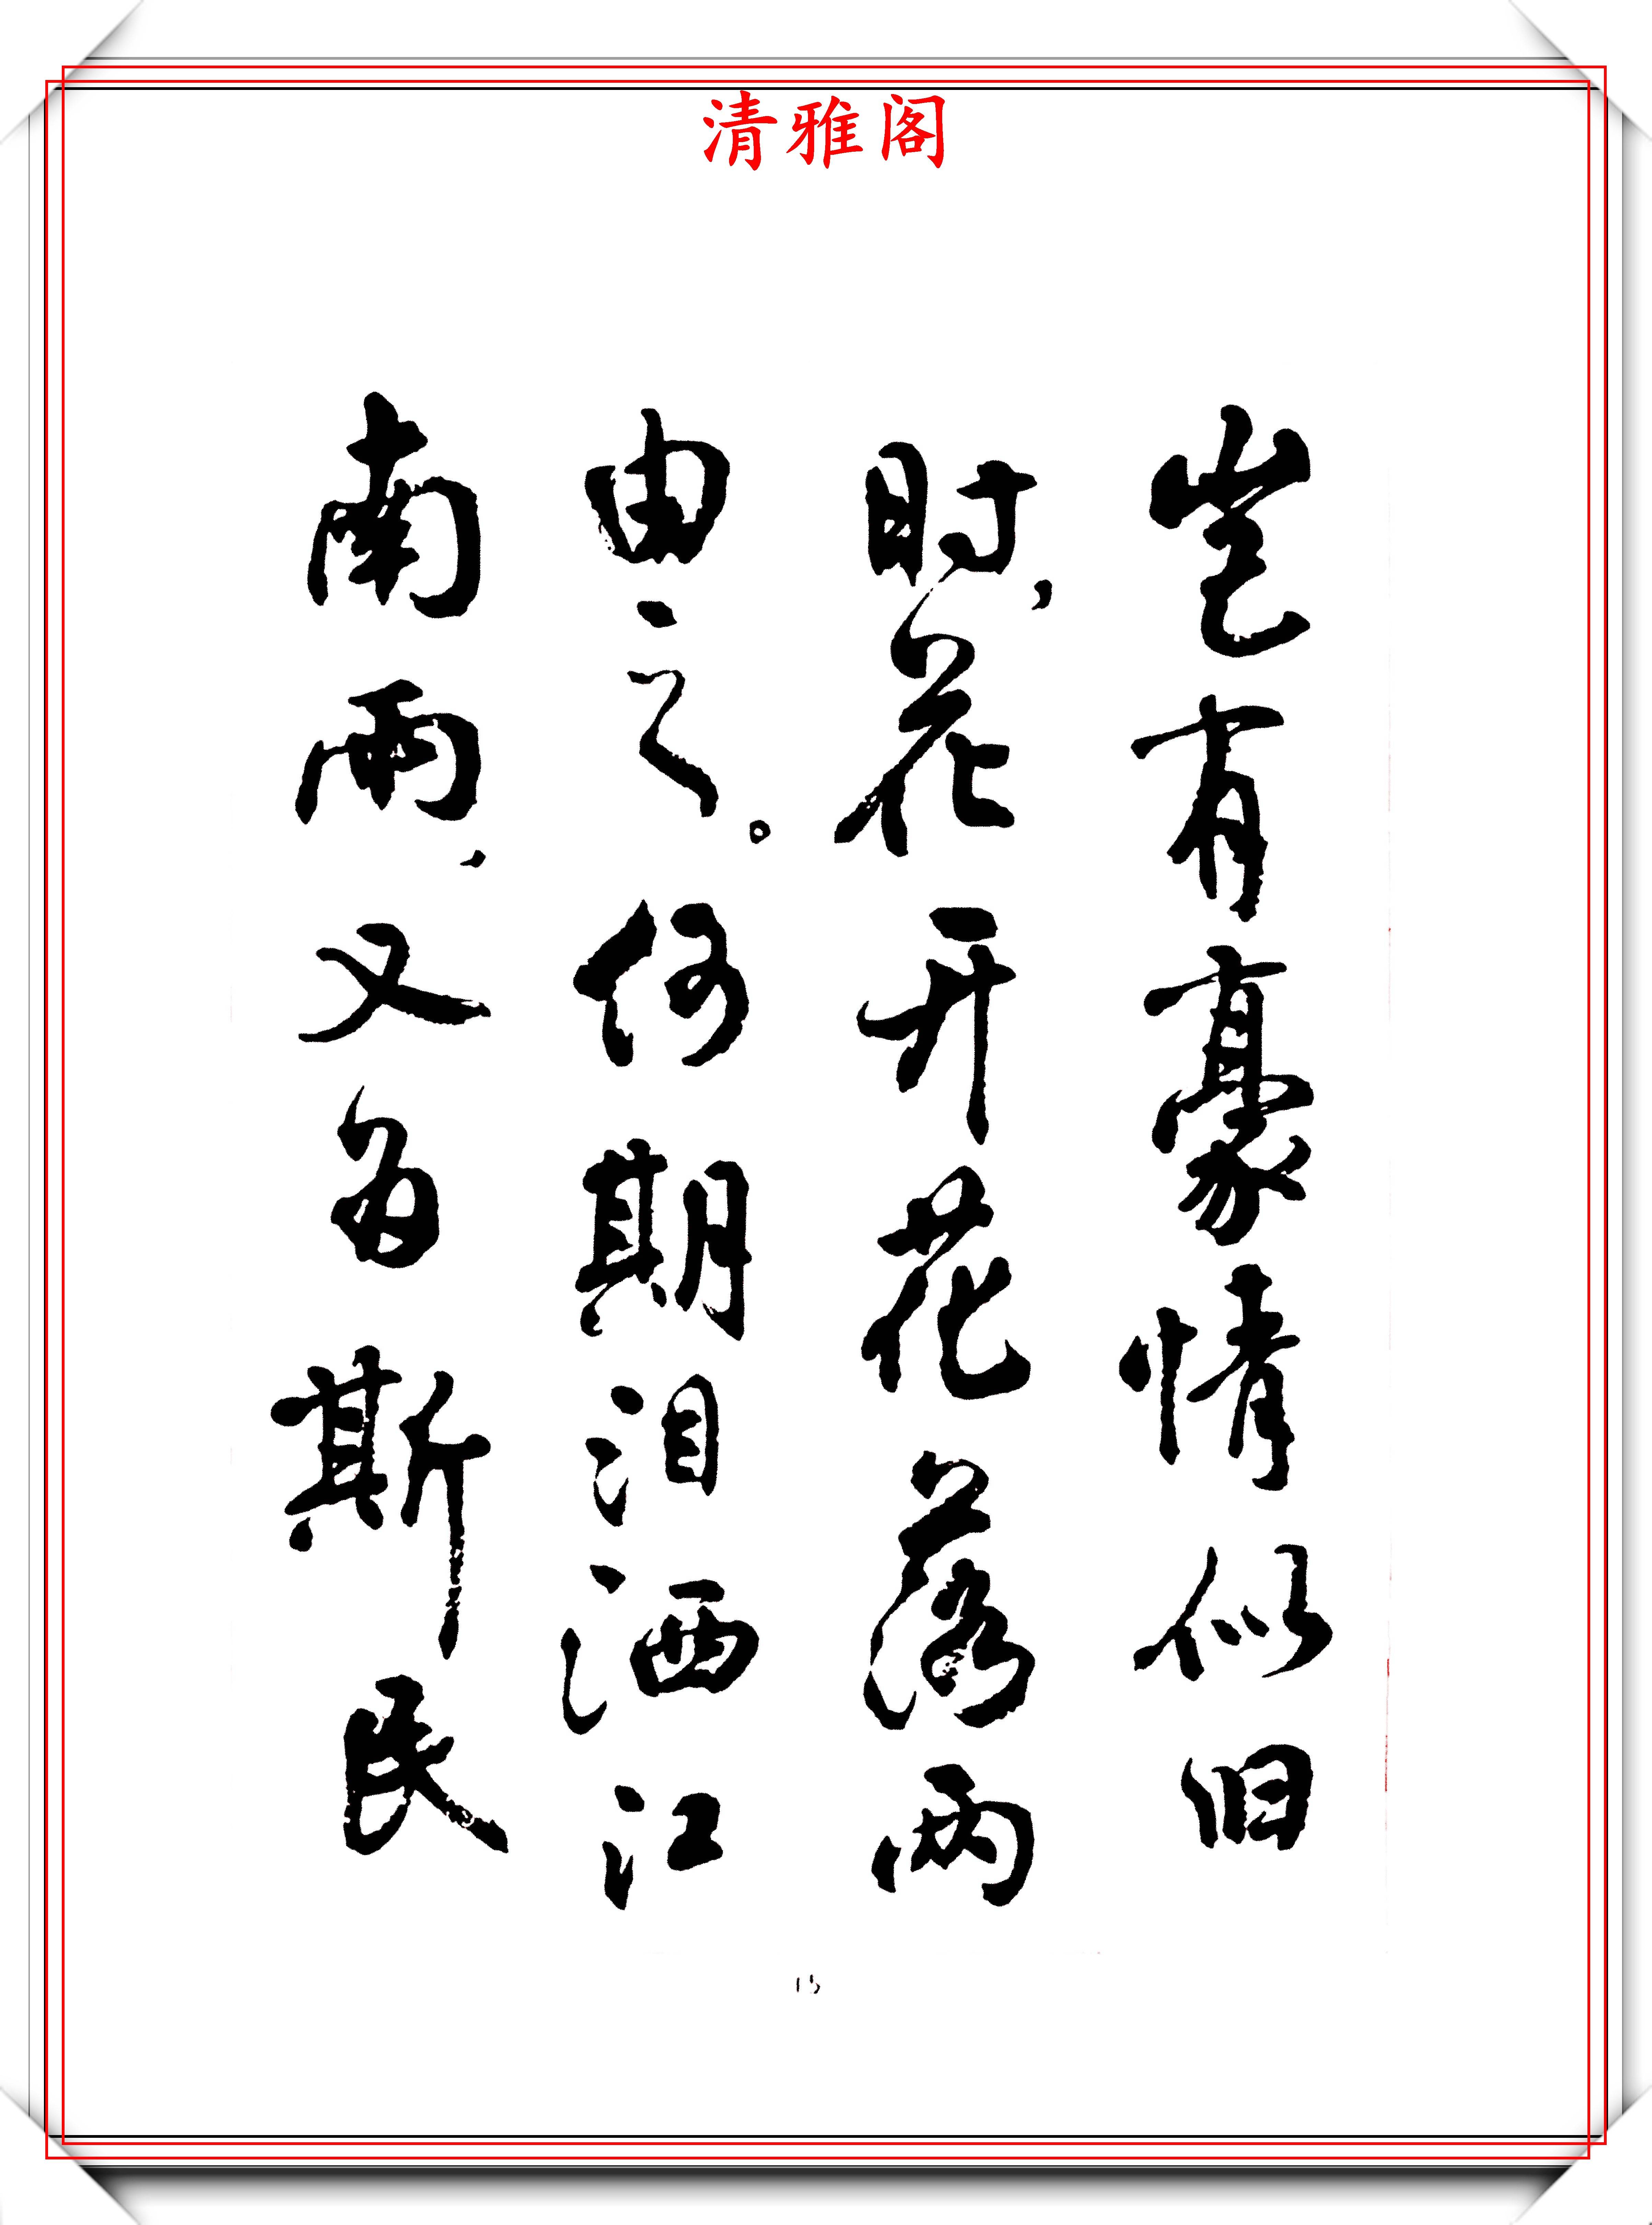 清雅阁
岂有豪情似旧
时,花开花落两
由之。何期泪洒江
南雨,又为斯民